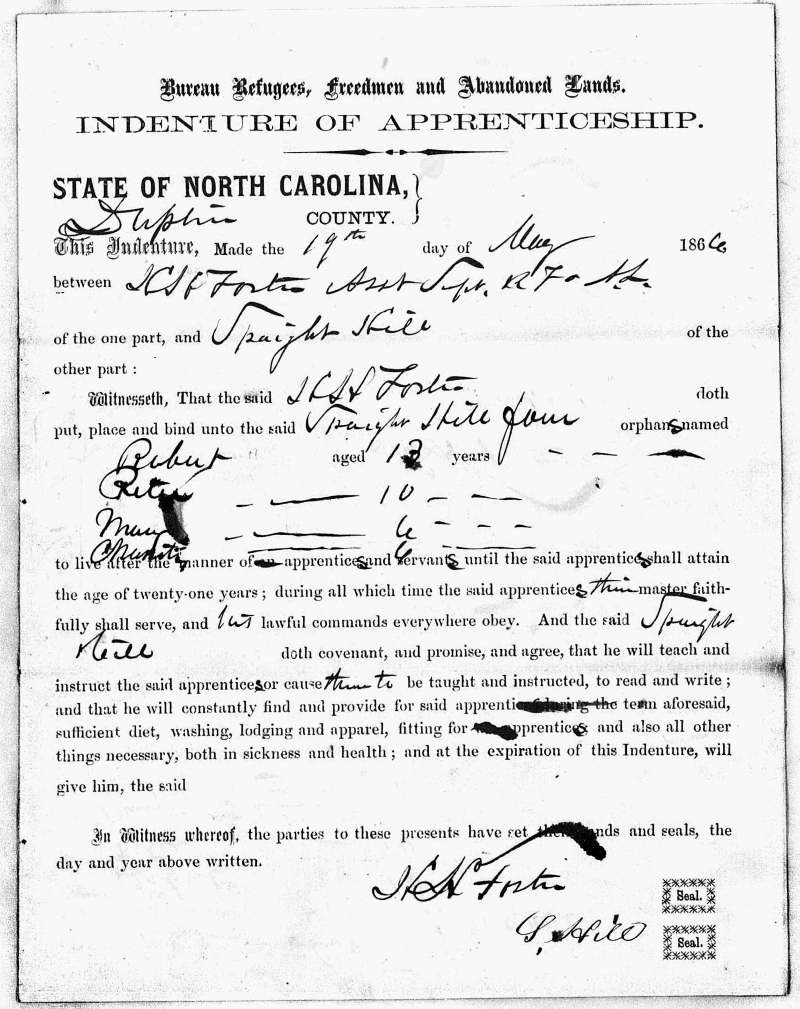 Bureau Refugees, Freedmen and Abandoned Lands.
INDENTURE OF APPRENTICESHIP.
STATE OF NORTH CAROLINA,
Duplin COUNTY.
This Indenture, Made the 19th day of May 1866
between H H Foster Asst Supt. R F & A.L.
of the one part, and Spaight Hill of the
other part :
Witnesseth, That the said H H Foster doth
put, place and bind unto the said Spaight Hill four orphans named
Robert aged 13 years
Peter 10
6
Charity 6
to live after the manner of an apprentices and servants until the said apprentices shall attain
the age of twenty-one years ; during all which time the said apprentices their master faith-
fully shall serve, and his lawful commands everywhere obey. And the said Spaight
Hill doth covenant, and promise, and agree, that he will teach and
instruct the said apprentices or cause them to be taught and instructed, to read and write ;
and that he will constantly find and provide for said apprentices during the term aforesaid,
sufficient diet, washing, lodging and apparel, fitting for apprentices and also all other
things necessary, both in sickness and health ; and at the expiration of this Indenture, will
give him, the said
In Witness whereof, the parties to these presents have set their hands and seals, the
day and year above written.
H H Foster Seal.
S. Hill Seal.